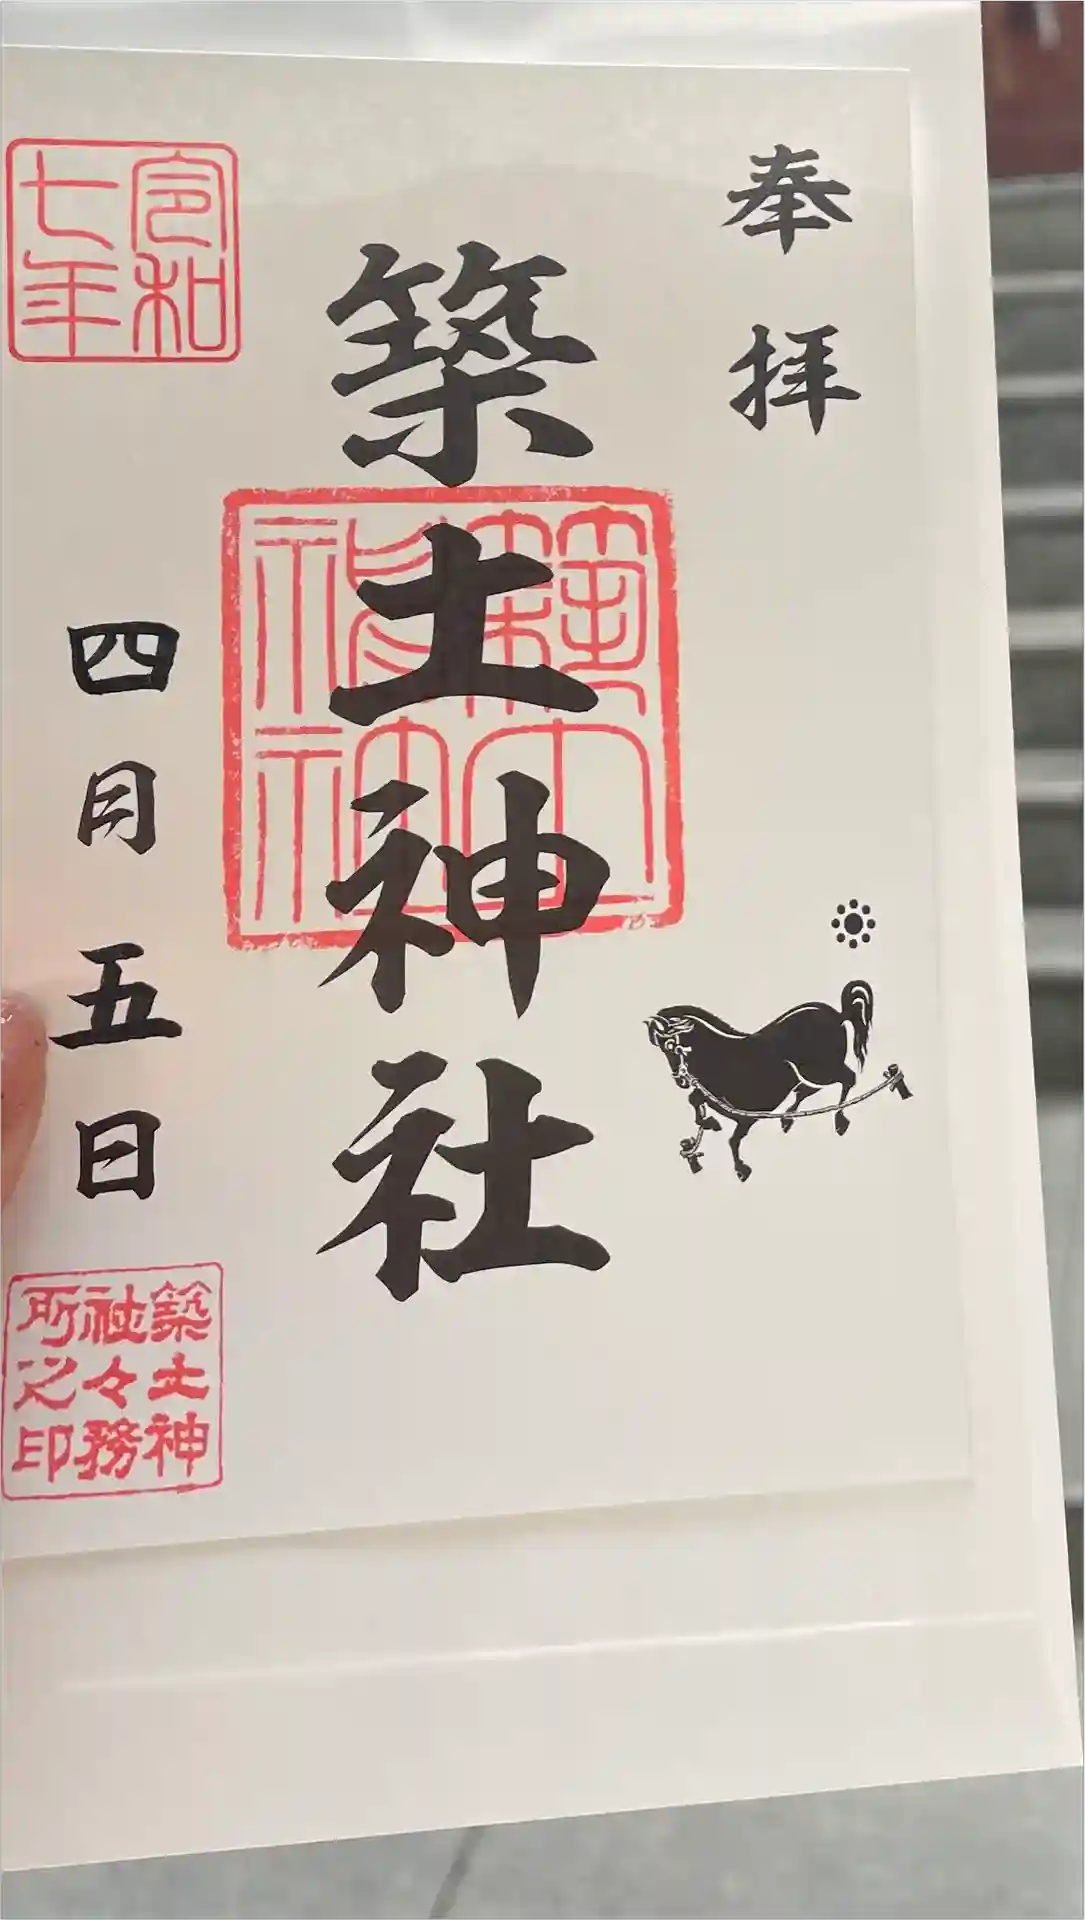 奉拝
築土神社
築土神社
令和七年
四月五日
築土神社々務所之印